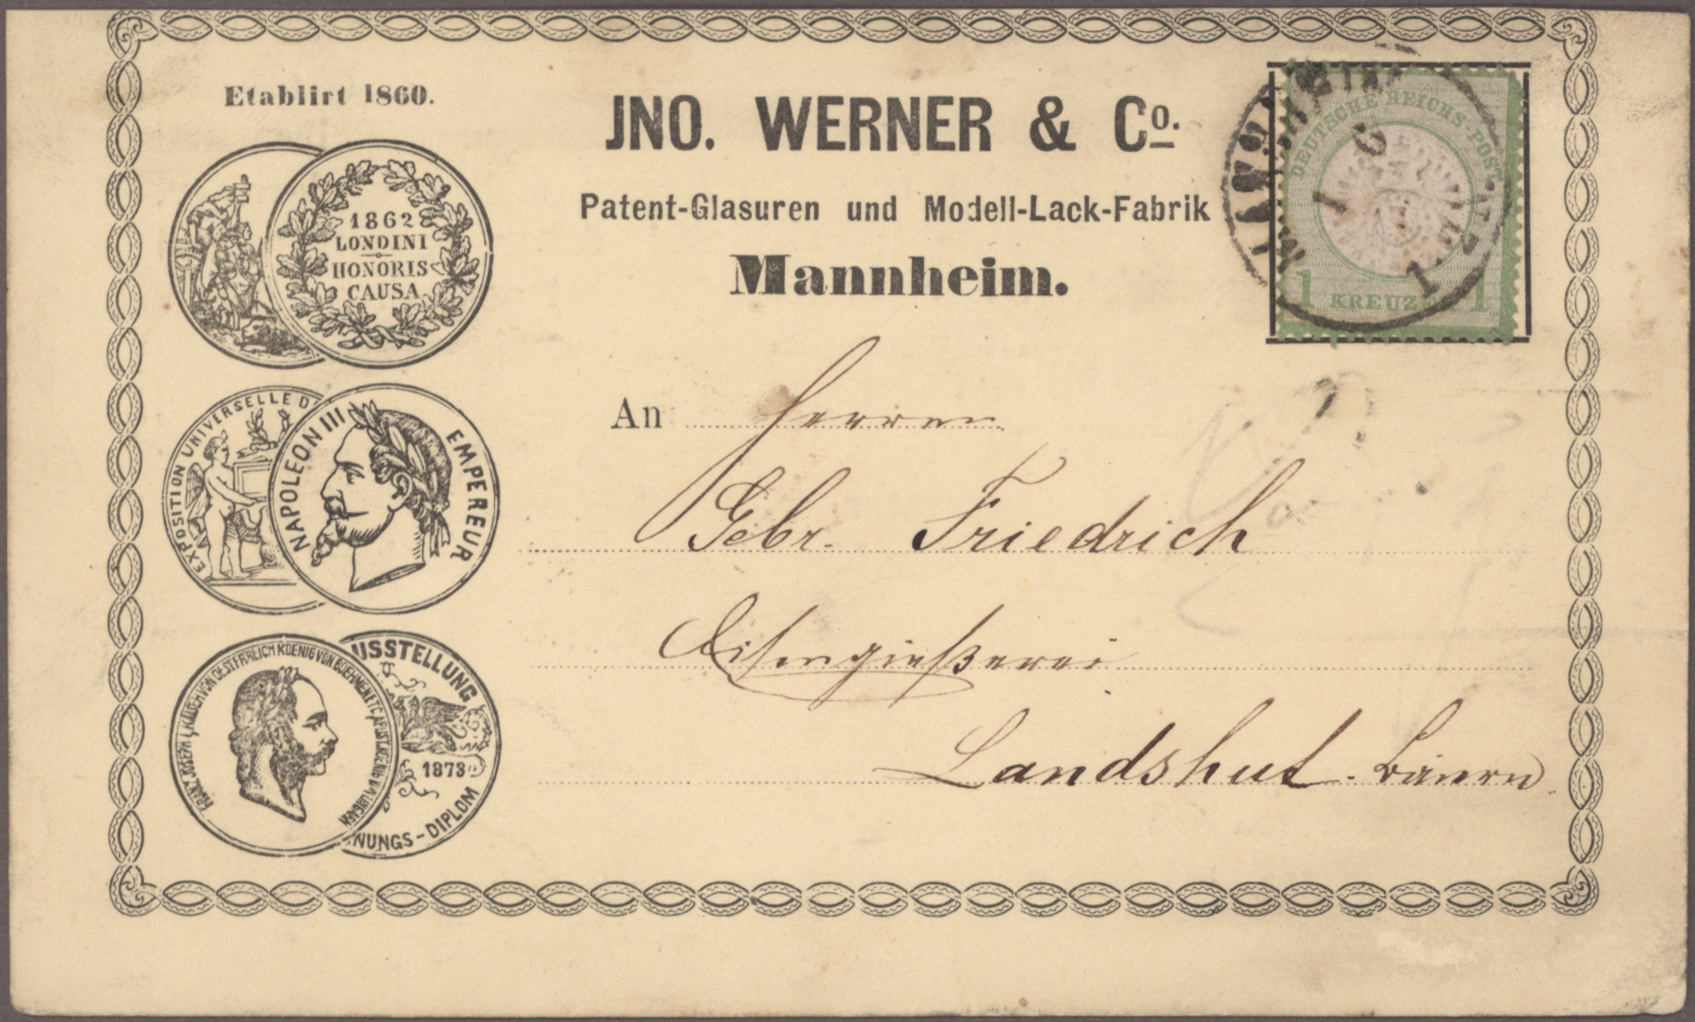 Etablirt 1860.
JNO. WERNER & Co.
Patent-Glasuren und Modell-Lack-Fabrik
Mannheim.
DEUTSCHE REICHS-POST
1 KREUZER 1
MANNHEIM
1 6
1862
LONDINI
HONORIS
CAUSA
EXPOSITION UNIVERSELLE D
NAPOLEON III EMPEREUR
FRANZ JOSEPH I KAISER VON OESTERREICH KOENIG VON BOEHMEN ETC
USSTELLUNG
1873
NUNGS-DIPLOM
An Herren
Gebr. Friedrich
Eisengießerei
Landshut. Baiern